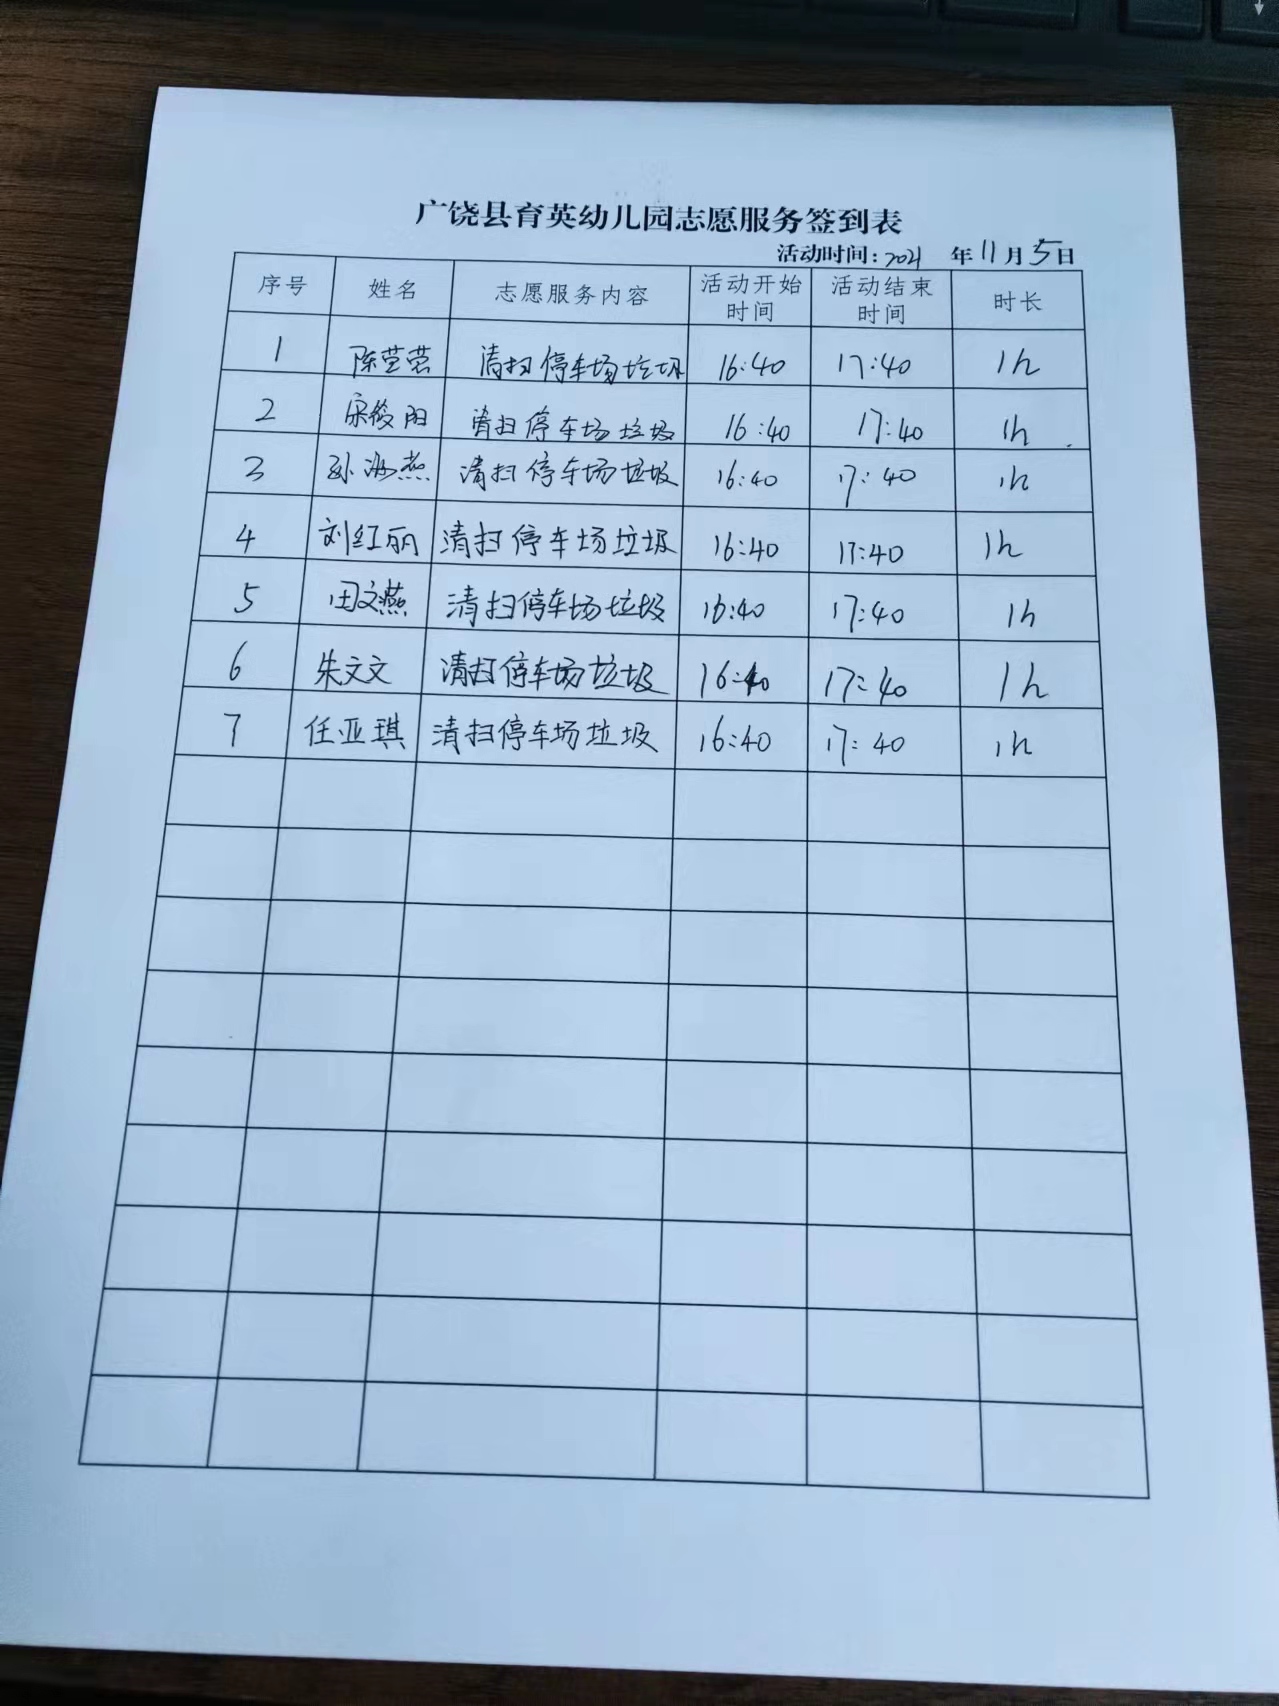 广饶县育英幼儿园志愿服务签到表
活动时间：2021 年11月5日
序号 姓名 志愿服务内容 活动开始时间 活动结束时间 时长
1 陈莹莹 清扫停车场垃圾 16:40 17:40 1h
2 宋俊阳 清扫停车场垃圾 16:40 17:40 1h
3 孙海燕 清扫停车场垃圾 16:40 17:40 1h
4 刘红丽 清扫停车场垃圾 16:40 17:40 1h
5 田文燕 清扫停车场垃圾 16:40 17:40 1h
6 朱文文 清扫停车场垃圾 16:40 17:40 1h
7 任亚琪 清扫停车场垃圾 16:40 17:40 1h